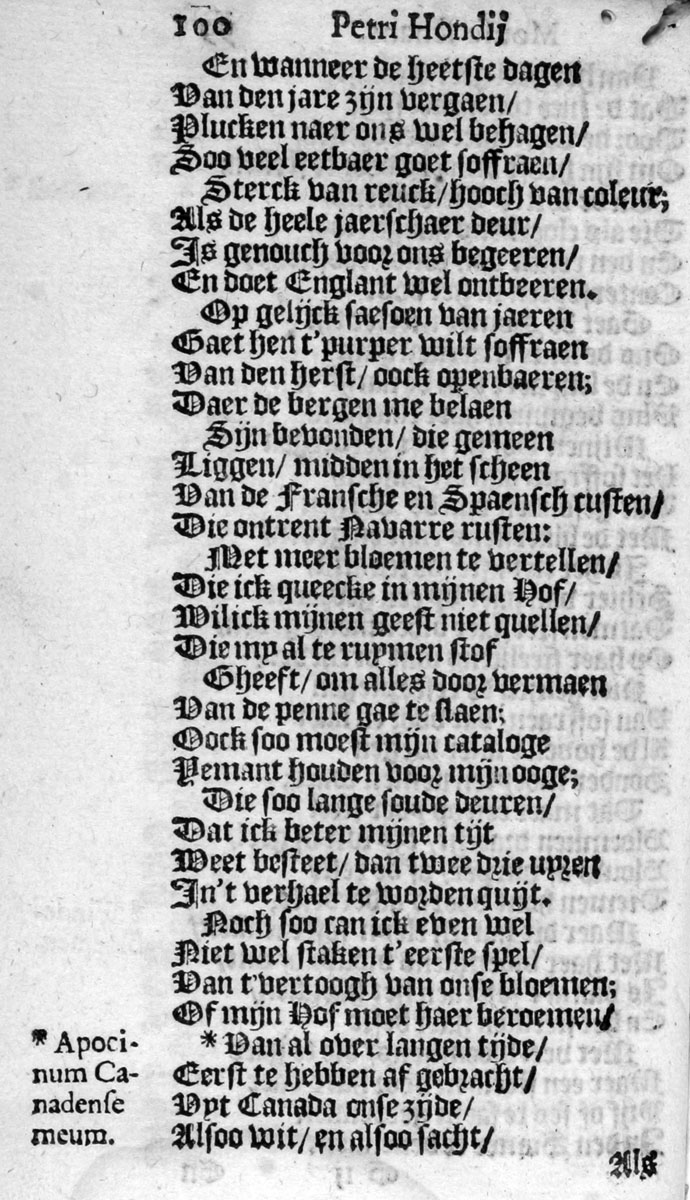 100 Petri Hondij
En wanneer de heetste dagen
Van den jare zijn vergaen/
Plucken naer ons wel behagen/
Soo veel eetbaer goet soffraen/
Sterck van reuck/hooch van coleur;
Als de heele jaerschaer deur/
Is genouch voor ons begeeren/
En doet Englant wel ontbeeren.
Op gelijck saesoen van jaeren
Gaet hen t'purper wilt soffraen
Van den herst/ oock openbaeren;
Daer de bergen me belaen
Sijn bevonden/ die gemeen
Liggen/ midden in het scheen
Van de Fransche en Spaensch custen/
Die ontrent Navarre rusten:
Met meer bloemen te vertellen/
Die ick queecke in mijnen Hof/
Wilick mijnen geest niet quellen/
Die my al te ruymen stof
Gheeft/ om alles door vermaen
Van de penne gae te slaen;
Oock soo moest mijn cataloge
Yemant houden voor mijn ooge;
Die soo lange soude deuren/
Dat ick beter mijnen tijt
Weet besteet/ dan twee drie uyren
In't verhael te worden quijt.
Noch soo can ick even wel
Niet wel staken t'eerste spel/
Van t'vertoogh van onse bloemen;
Of mijn Hof moet haer beroemen/
* Van al over langen tijde/
Eerst te hebben af gebracht/
Uyt Canada onse zijde/
Alsoo wit/ en alsoo sacht/
Als
* Apoci-
num Ca-
nadense
meum.